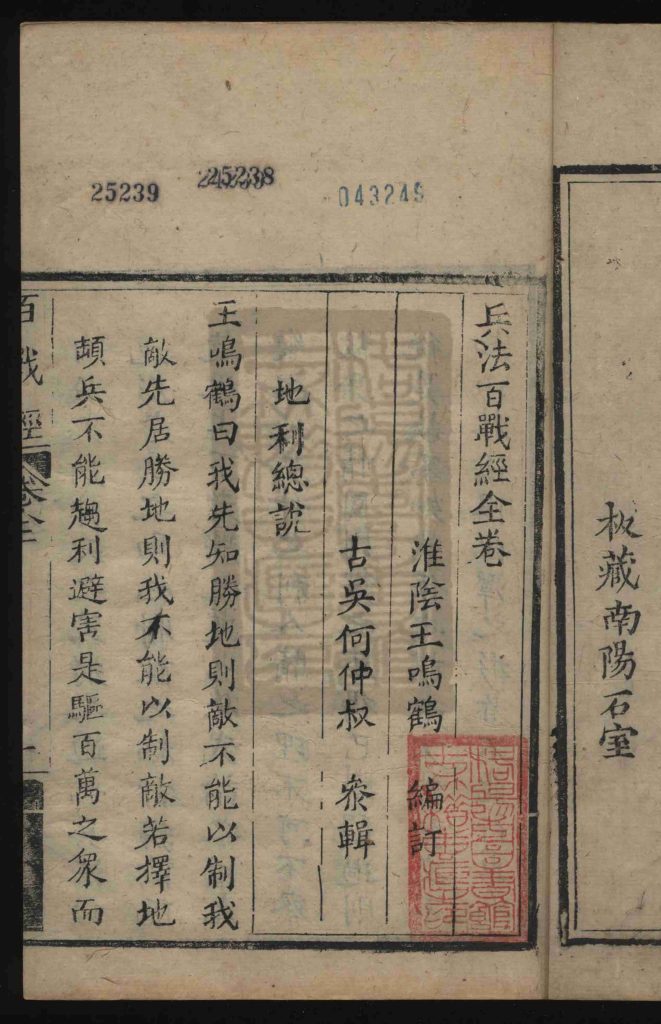 板藏南陽石室
25239
25238
043245
兵法百戰經全卷
淮陰王鳴鶴 編訂
古吳何仲叔 叅輯
地利總說
王鳴鶴曰我先知勝地則敵不能以制我
敵先居勝地則我不能以制敵若擇地
頓兵不能趨利避害是驅百萬之衆而
百戰經
卷全
一